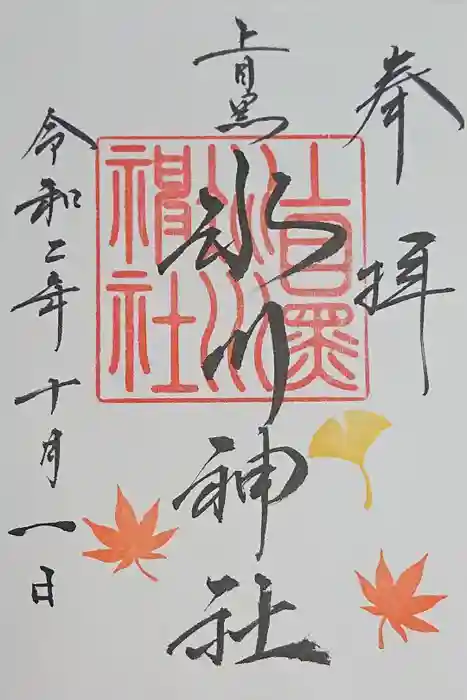 奉拝
上目黒
氷川神社
上目黒
氷川
神社
令和二年十月一日